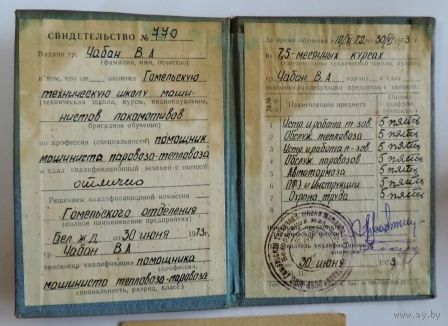 СВИДЕТЕЛЬСТВО № 770
Выдано гр. Чабан В.А
(фамилия, имя, отчество)
в том, что он окончил Гомельскую
техническую школу маши-
(техническая школа, курсы, индивидуальное,
нистов локомотивов
бригадное обучение)
по профессии (специальности) помощник
машиниста паровоза-тепловоза
и сдал квалификационный экзамен с оценкой
отлично
Решением квалификационной комиссии
Гомельского отделения
(полное наименование предприятия)
Бел. ж.д. от 30 июня 1973г.
гр. Чабан В.А
присвоена квалификация помощника
(профессия,
машиниста тепловоза-паровоза
специальность, разряд, класс)
За время обучения с 10/XI-72 по 30/VI 1973 г.
на 7,5-месячных курсах
гр. Чабан В.А изучил и сдал
экзамены по следующим предметам с оценкой:
№№ Наименование предмета
1 Устр. и работа т-зов. 5 пять
2 Обслуж. тепловоза 5 пять
3 Устр. и работа п-зов. 5 пять
4 Обслуж. паровозов 5 пять
5 Автотормоза 5 пять
6 ПТЭ и Инструкции 5 пять
7 Охрана труда 5 пять
30 июня 1973 г.
www.ay.by